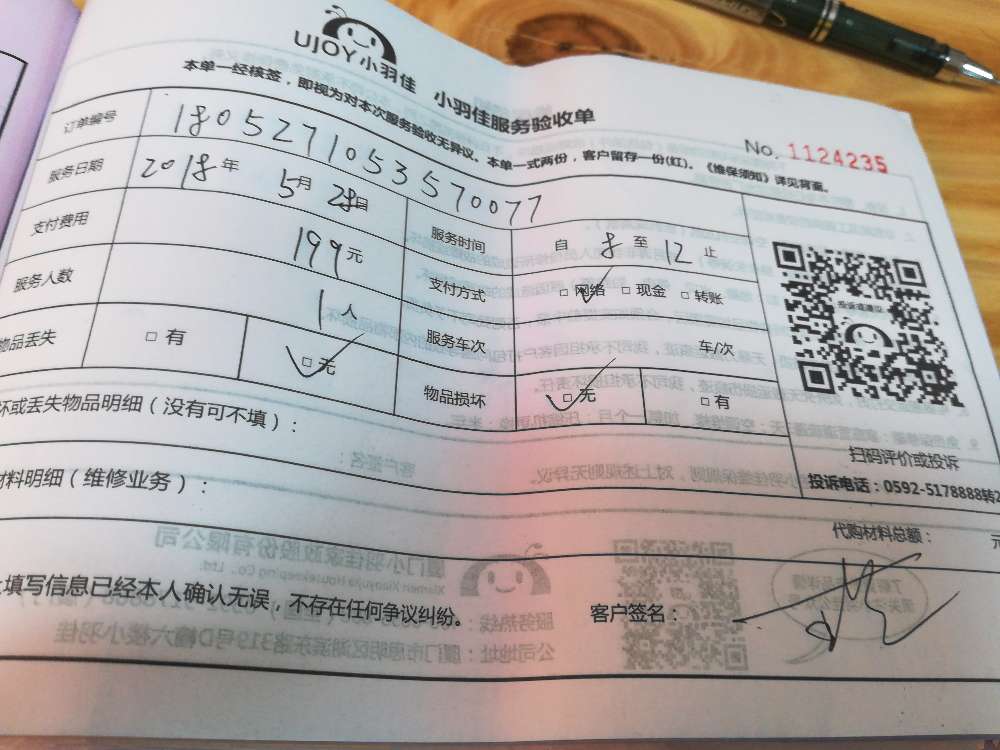 UJOY小羽佳 小羽佳服务验收单
本单一经核签，即视为对本次服务验收无异议、本单一式两份，客户留存一份(红)。《维保须知》详见背面。
No. 1124235
订单编号 1805271053570077
服务日期 2018年 5月 28日 服务时间 自 8 至 12 止
支付费用 199元 支付方式 □网络 □现金 □转账
服务人数 1人 服务车次 车/次
物品丢失 □有 □无 物品损坏 □无 □有
投诉或建议
扫码评价或投诉
投诉电话：0592-5178888转2
坏或丢失物品明细（没有可不填）：
材料明细（维修业务）：
代购材料总额： 元
填写信息已经本人确认无误，不存在任何争议纠纷。 客户签名：